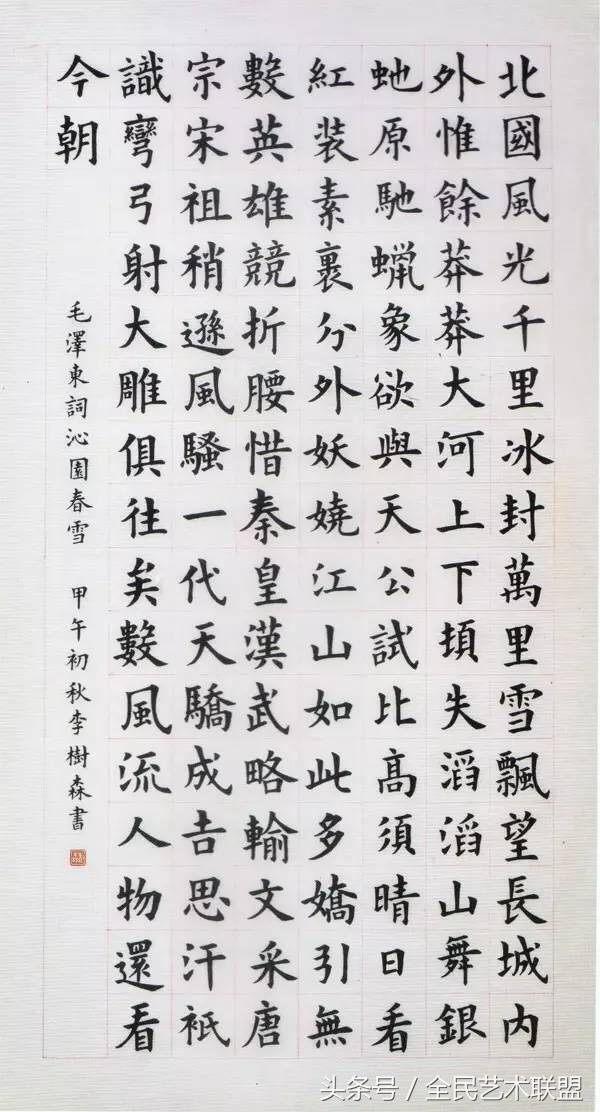 北國風光千里冰封萬里雪飄望長城内
外惟餘莽莽大河上下頓失滔滔山舞銀
虵原馳蠟象欲與天公試比高須晴日看
紅装素裹分外妖嬈江山如此多嬌引無
數英雄競折腰惜秦皇漢武略輸文采唐
宗宋祖稍遜風騷一代天驕成吉思汗衹
識彎弓射大雕俱往矣數風流人物還看
今朝
毛澤東詞沁園春雪 甲午初秋李樹森書
头条号 / 全民艺术联盟